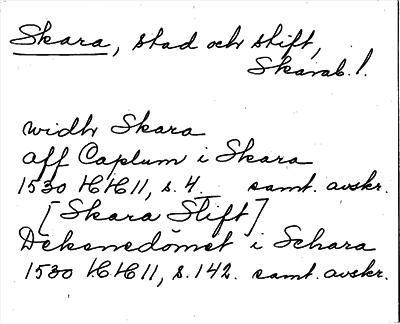 Skara, stad och stift,
Skarab. l.
widh Skara
aff Caplum i Skara
1530 HH 11, s. 4. samt. avskr.
[Skara Stift]
Dekenedömet i Schara
1530 HH 11, s. 142. samt. avskr.